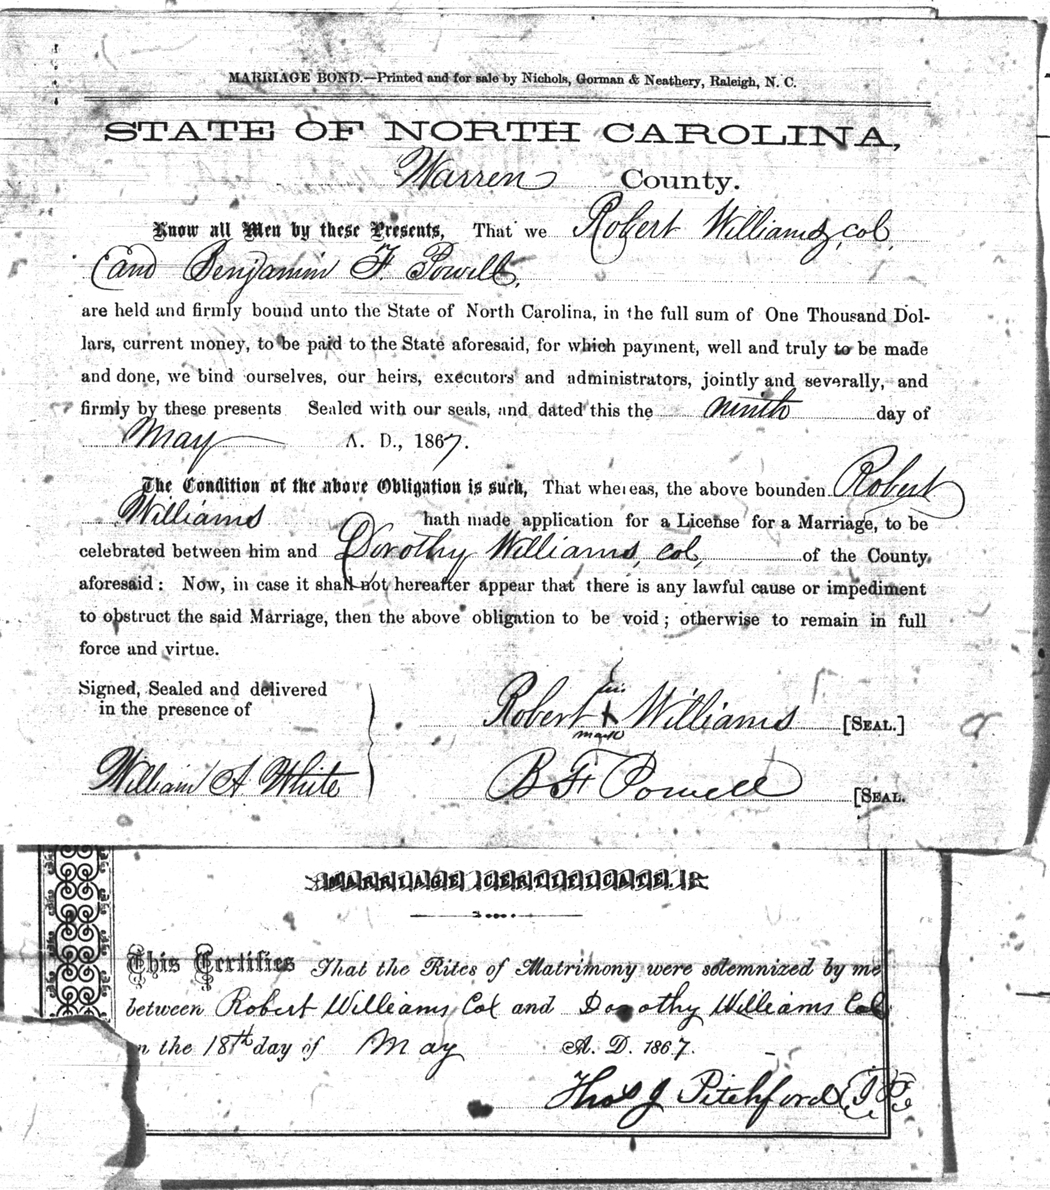 MARRIAGE BOND.—Printed and for sale by Nichols, Gorman & Neathery, Raleigh, N. C.
STATE OF NORTH CAROLINA,
Warren County.
Know all Men by these Presents, That we Robert Williams, col,
and Benjamin F. Powell,
are held and firmly bound unto the State of North Carolina, in the full sum of One Thousand Dol-
lars, current money, to be paid to the State aforesaid, for which payment, well and truly to be made
and done, we bind ourselves, our heirs, executors and administrators, jointly and severally, and
firmly by these presents Sealed with our seals, and dated this the ninth day of
May A. D., 1867.
The Condition of the above Obligation is such, That whereas, the above bounden Robert
Williams hath made application for a License for a Marriage, to be
celebrated between him and Dorothy Williams, col, of the County
aforesaid: Now, in case it shall not hereafter appear that there is any lawful cause or impediment
to obstruct the said Marriage, then the above obligation to be void; otherwise to remain in full
force and virtue.
Signed, Sealed and delivered
in the presence of
his
Robert X Williams [SEAL.]
mark
William A White B F Powell [SEAL.
MARRIAGE CERTIFICATE.
This Certifies That the Rites of Matrimony were solemnized by me
between Robert Williams Col and Dorothy Williams Col
on the 18th day of May A. D. 1867.
Thos J Pitchford JP